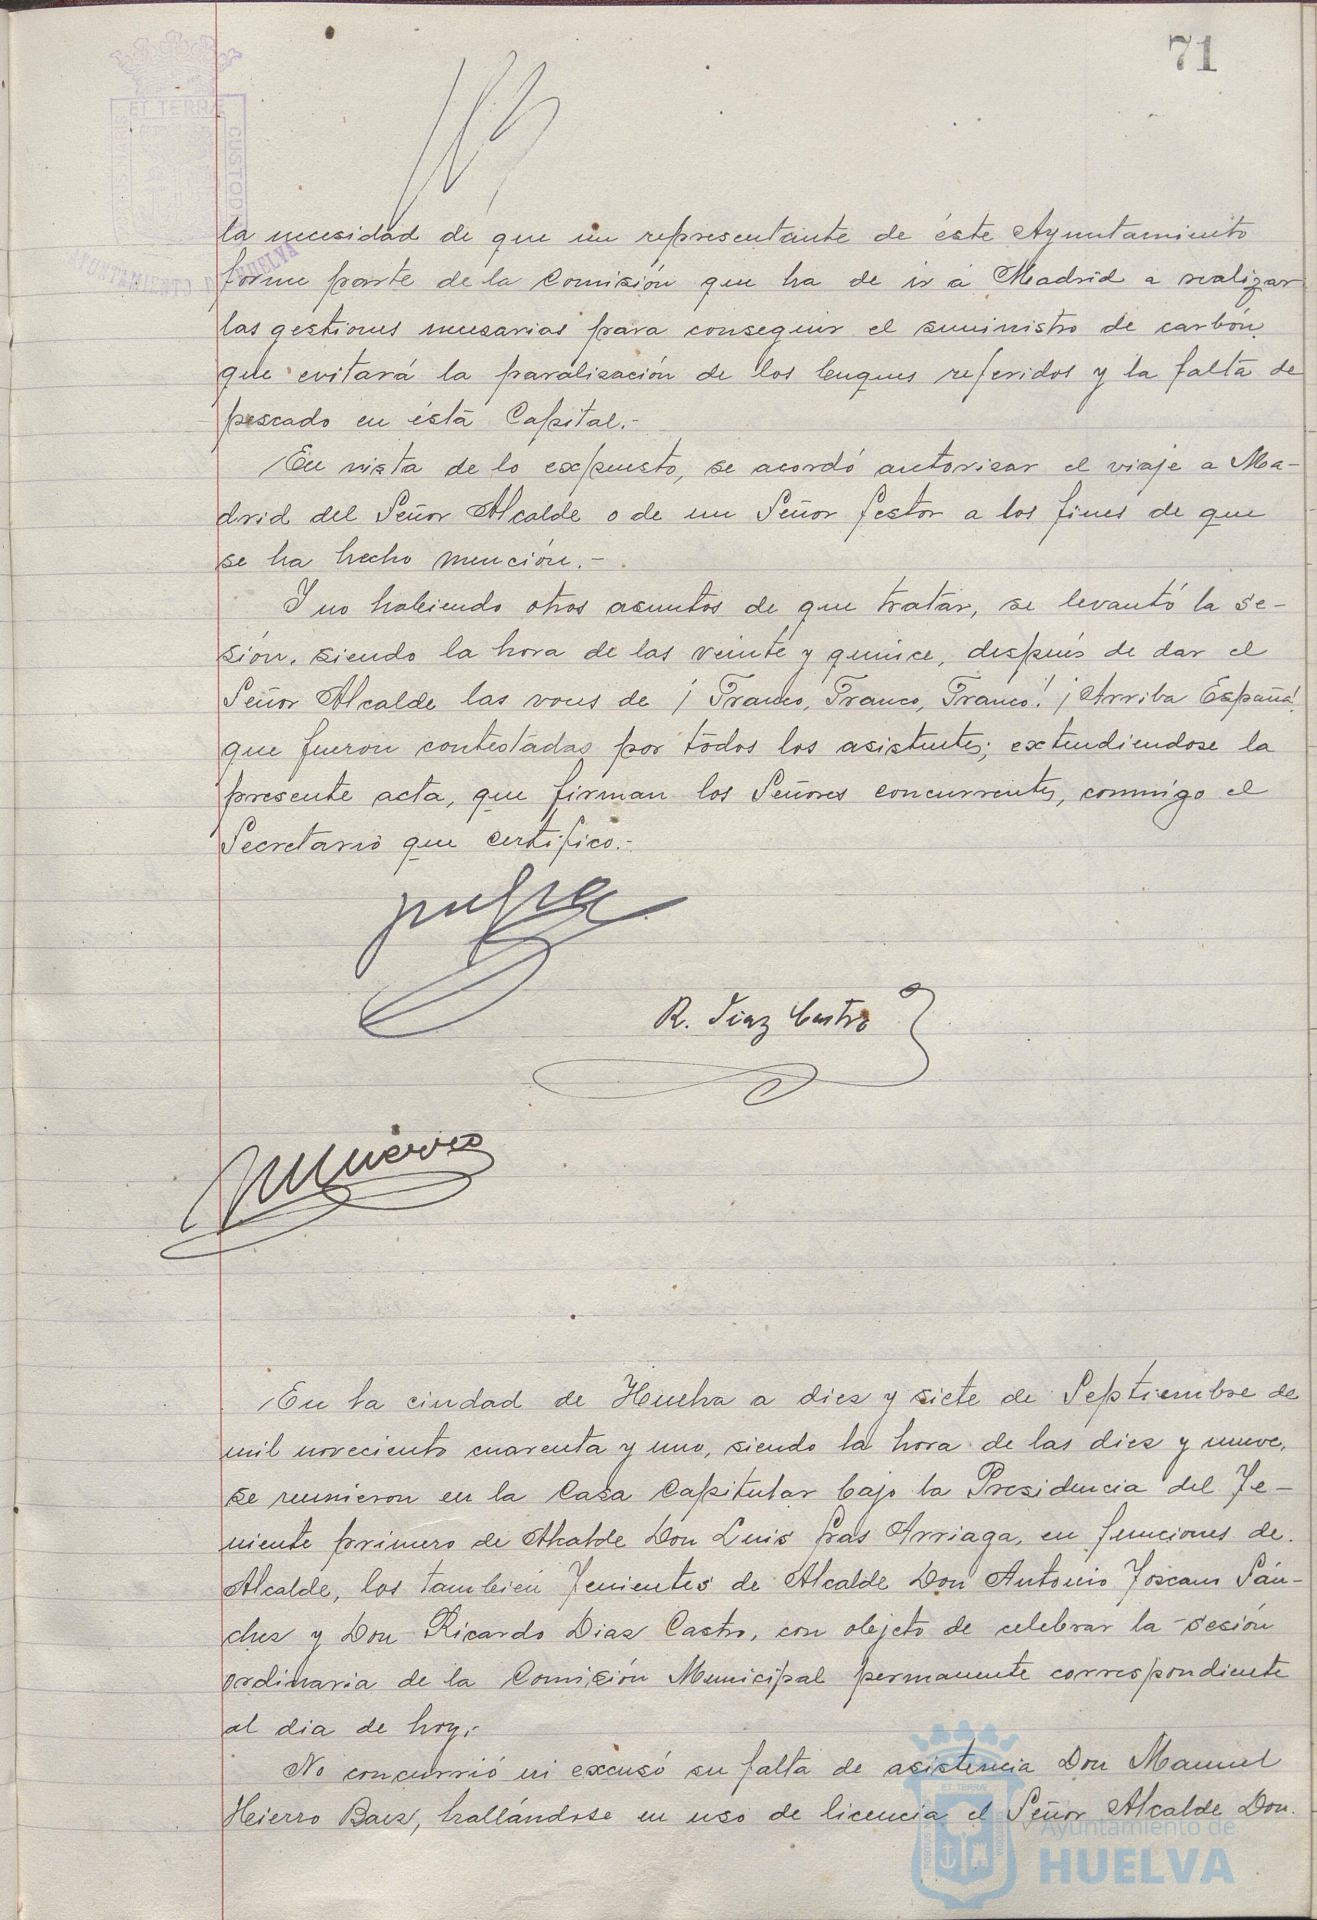 71
ET TERRÆ
CUSTOD
AYUNTAMIENTO DE HUELVA
la necesidad de que un representante de éste Ayuntamiento
forme parte de la Comisión que ha de ir a Madrid a realizar
las gestiones necesarias para conseguir el suministro de carbón
que evitará la paralización de los buques referidos y la falta de
pescado en ésta Capital.-
En vista de lo expuesto, se acordó autorizar el viaje a Ma-
drid del Señor Alcalde o de un Señor Gestor a los fines de que
se ha hecho mención.-
Y no habiendo otros asuntos de que tratar, se levantó la se-
sión, siendo la hora de las veinte y quince, después de dar el
Señor Alcalde las voces de ¡Franco, Franco, Franco! ¡Arriba España!
que fueron contestadas por todos los asistentes; extendiendose la
presente acta, que firman los Señores concurrentes, conmigo el
Secretario que certifico.-
R. Diaz Castro
En la ciudad de Huelva a diez y siete de Septiembre de
mil noveciento cuarenta y uno, siendo la hora de las diez y nueve,
se reunieron en la Casa Capitular bajo la Presidencia del Te-
niente primero de Alcalde Don Luis Gras Arriaga, en funciones de
Alcalde, los tambien Tenientes de Alcalde Don Antonio Toscano Sán-
chez y Don Ricardo Diaz Castro, con objeto de celebrar la sesión
ordinaria de la Comisión Municipal permanente correspondiente
al dia de hoy.-
No concurrió ni excusó su falta de asistencia Don Manuel
Hierro Baez, hallándose en uso de licencia el Señor Alcalde Don
Ayuntamiento de
HUELVA